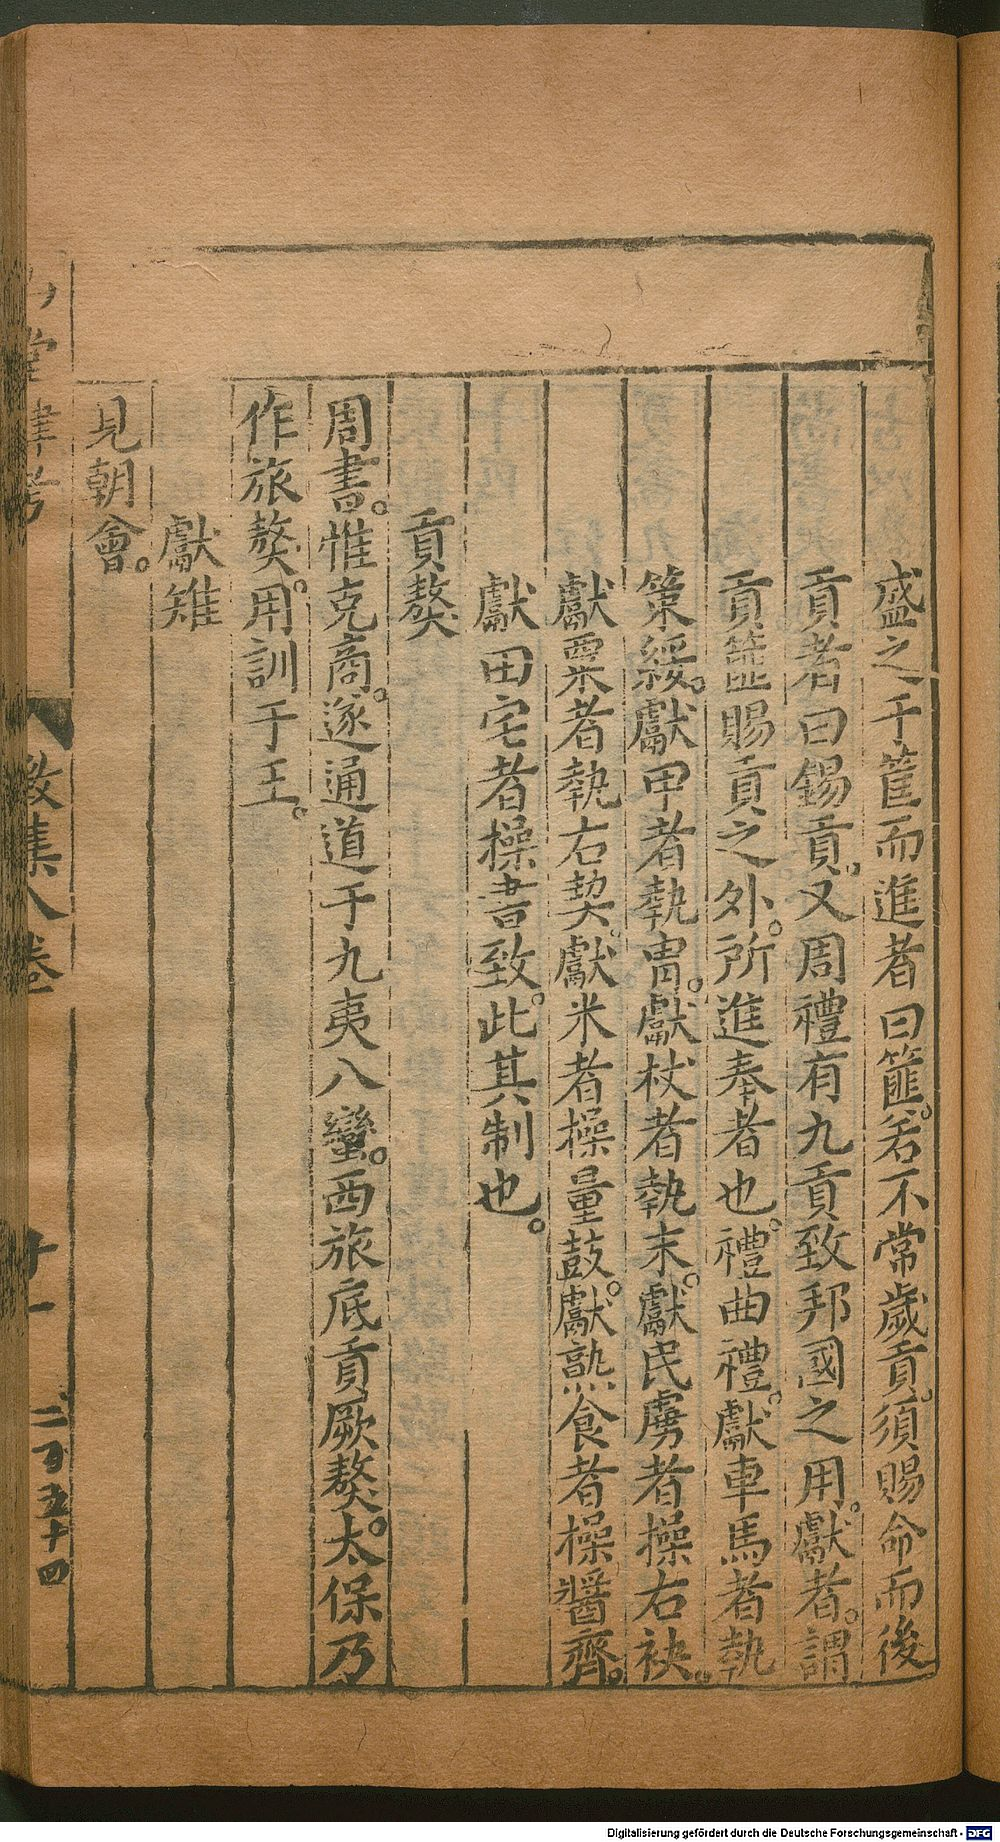 盛之于筐而進者曰篚。若不常歲貢。須賜命而後
貢者曰錫貢。又周禮有九貢致邦國之用。獻者。謂
貢篚賜貢之外。所進奉者也。禮曲禮。獻車馬者執
策綏。獻甲者執冑。獻杖者執末。獻民虜者操右袂。
獻粟者執右契。獻米者操量鼓。獻熟食者操醬齊。
獻田宅者操書致。此其制也。
貢獒
周書。惟克商。遂通道于九夷八蠻。西旅底貢厥獒。太保乃
作旅獒。用訓于王。
獻雉
見朝會。
堂肆考
徵集八卷
二百五十四
Digitalisierung gefördert durch die Deutsche Forschungsgemeinschaft - DFG